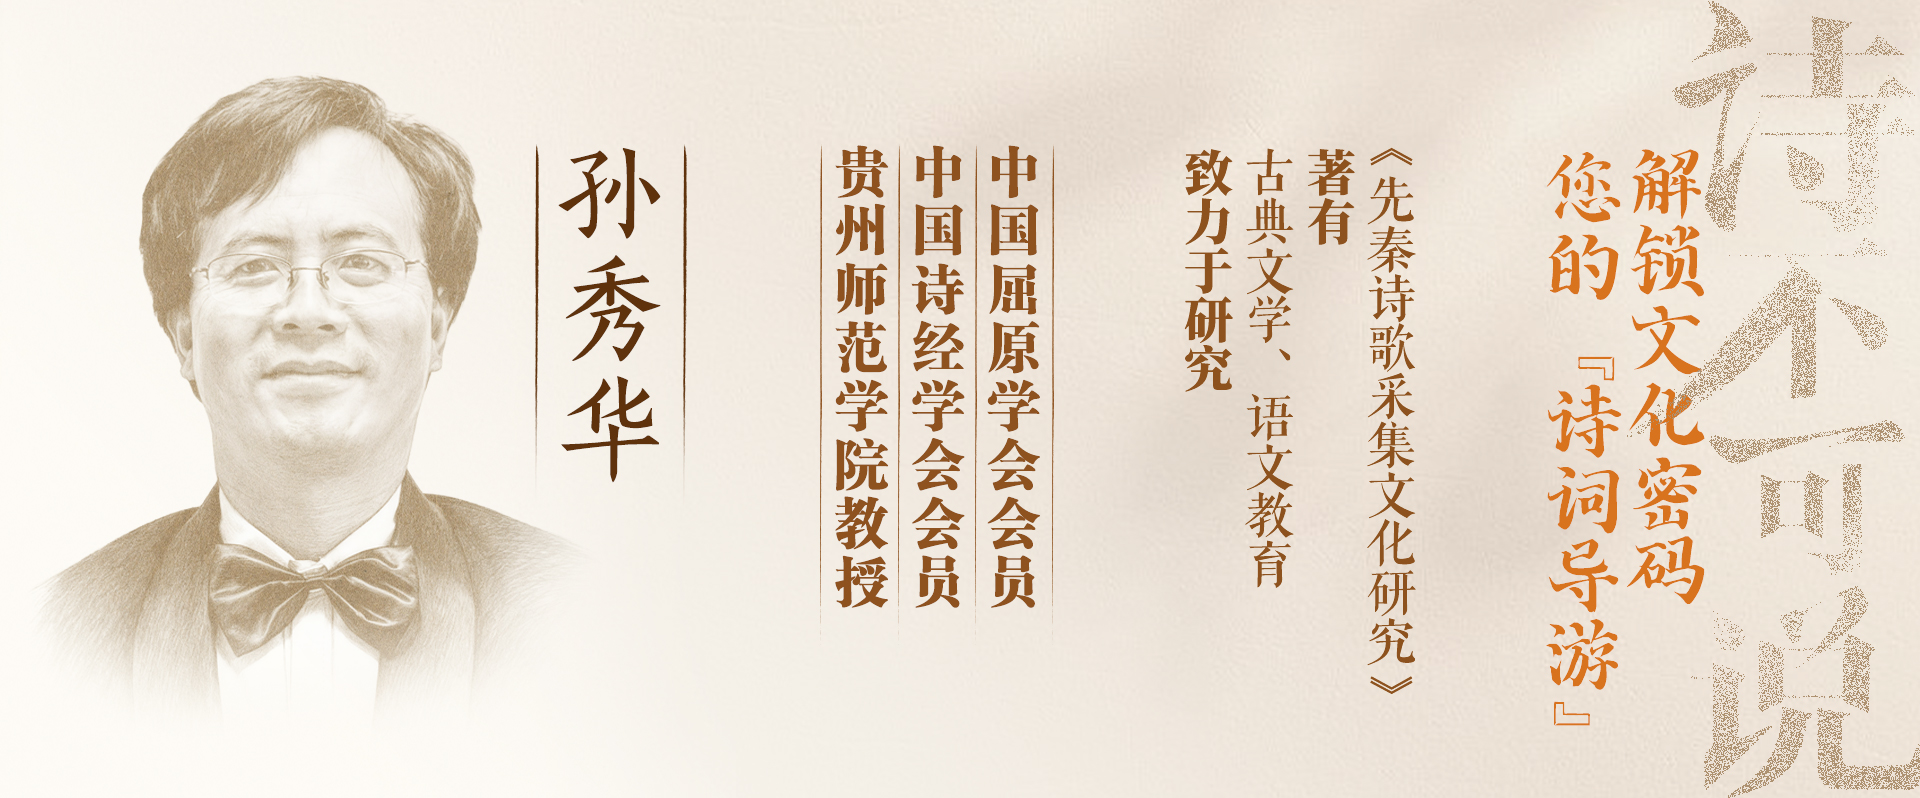 诗不可说
解锁文化密码
您的『诗词导游』
《先秦诗歌采集文化研究》
著有
古典文学、语文教育
致力于研究
中国屈原学会会员
中国诗经学会会员
贵州师范学院教授
孙秀华